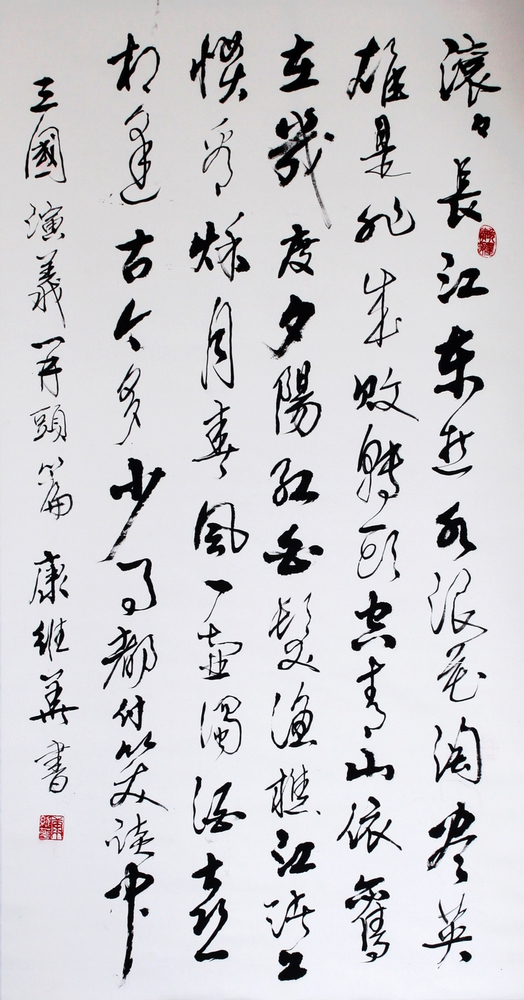 滚々長江東逝水浪花淘盡英
雄是非成敗轉頭空青山依舊
在幾度夕陽紅白髮漁樵江渚上
慣看秋月春風一壺濁酒喜
相逢古今多少事都付笑談中
三國演義開頭篇 康維華書